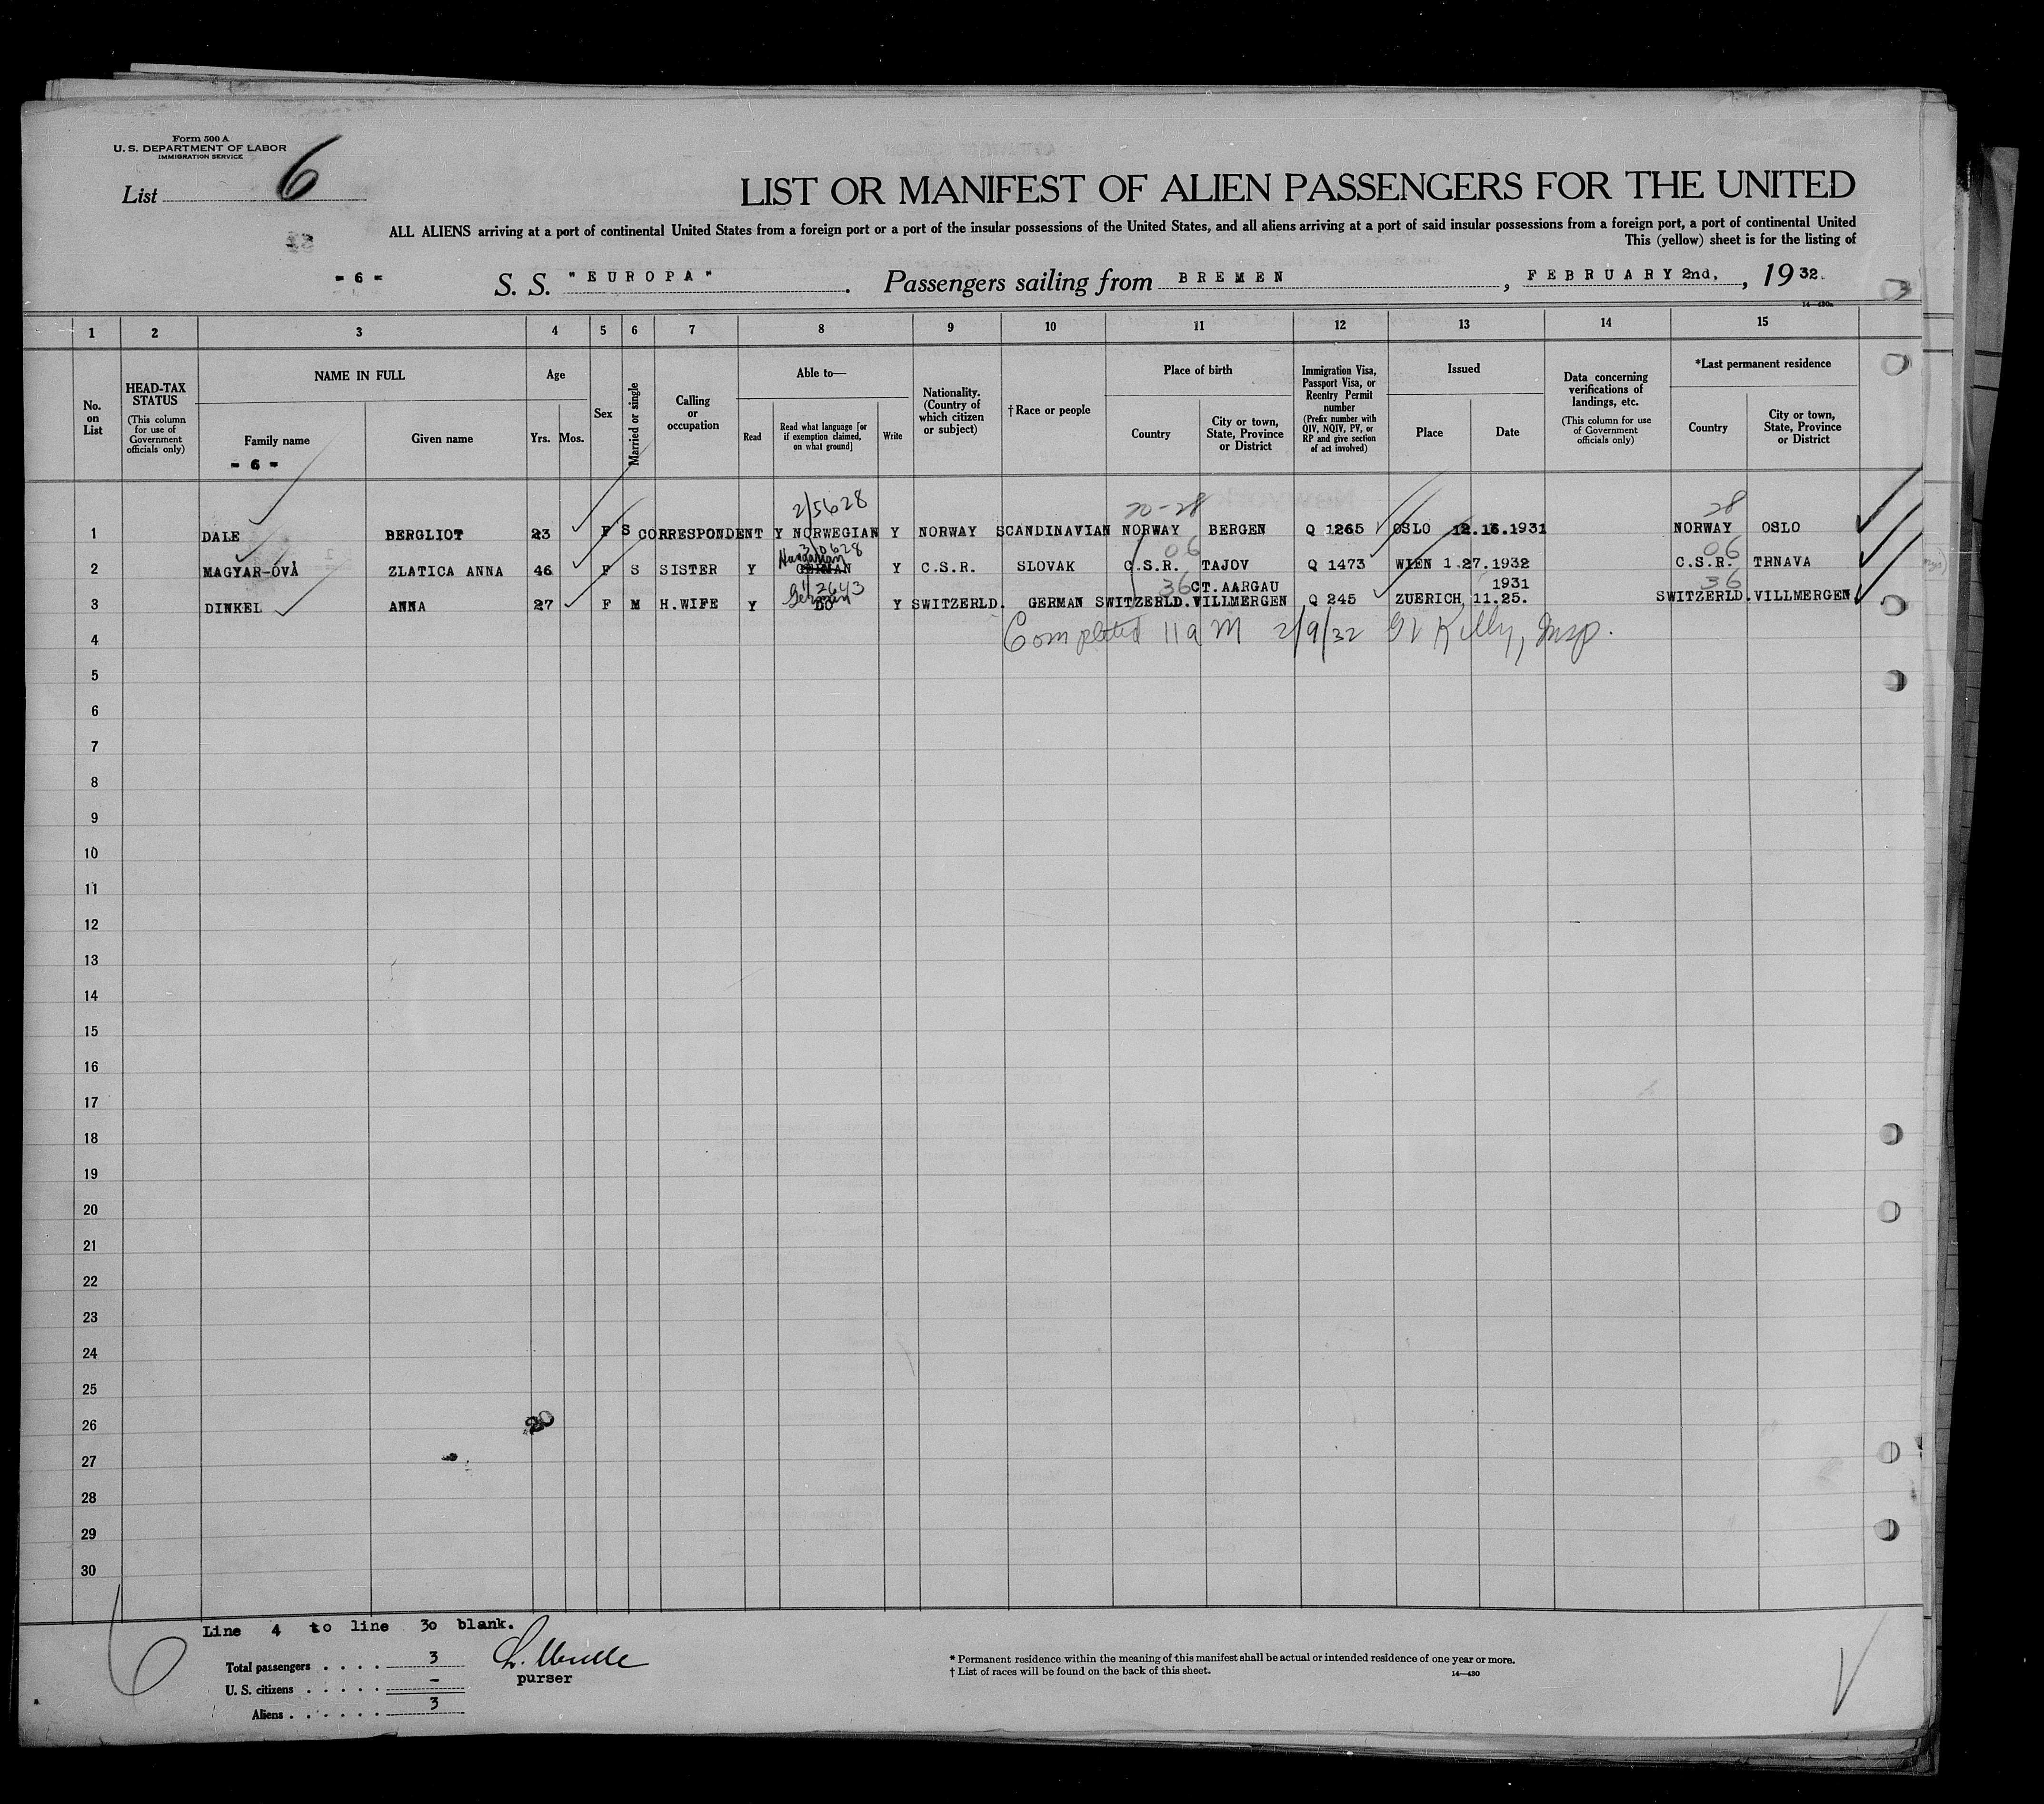 Form 500 A
U. S. DEPARTMENT OF LABOR
IMMIGRATION SERVICE
List 6
LIST OR MANIFEST OF ALIEN PASSENGERS FOR THE UNITED
ALL ALIENS arriving at a port of continental United States from a foreign port or a port of the insular possessions of the United States, and all aliens arriving at a port of said insular possessions from a foreign port, a port of continental United
This (yellow) sheet is for the listing of
- 6 - S. S. "EUROPA". Passengers sailing from BREMEN, FEBRUARY 2nd, , 19 32.
14—430a
1 2 3 4 5 6 7 8 9 10 11 12 13 14 15
No. on List
HEAD-TAX STATUS (This column for use of Government officials only)
NAME IN FULL
Family name
- 6 -
Given name
Age
Yrs. Mos.
Sex
Married or single
Calling or occupation
Able to—
Read
Read what language [or if exemption claimed, on what ground]
Write
Nationality. (Country of which citizen or subject)
† Race or people
Place of birth
Country
City or town, State, Province or District
Immigration Visa, Passport Visa, or Reentry Permit number (Prefix number with QIV, NQIV, PV, or RP and give section of act involved)
Issued
Place
Date
Data concerning verifications of landings, etc. (This column for use of Government officials only)
*Last permanent residence
Country
City or town, State, Province or District
2/5628 20-28 28
1 DALE BERGLIOT 23 F S CORRESPONDENT Y NORWEGIAN Y NORWAY SCANDINAVIAN NORWAY BERGEN Q 1265 OSLO 12.16.1931 NORWAY OSLO
3/0628 Hungarian 06 06
2 MAGYAR-ÓVÁ ZLATICA ANNA 46 F S SISTER Y GERMAN Y C.S.R. SLOVAK C.S.R. TAJOV Q 1473 WIEN 1.27.1932 C.S.R. TRNAVA
German 36 CT.AARGAU 1931 36
3 DINKEL ANNA 27 F M H.WIFE Y DO Y SWITZERLD. GERMAN SWITZERLD.VILLMERGEN Q 245 ZUERICH 11.25. SWITZERLD.VILLMERGEN
4 Completed 11 a M 2/9/32 Kelly, Insp.
5
6
7
8
9
10
11
12
13
14
15
16
17
18
19
20
21
22
23
24
25
26
27
28
29
30
Line 4 to line 30 blank.
Total passengers . . . . 3
purser
U. S. citizens . . . . . -
Aliens . . . . . . 3
6
* Permanent residence within the meaning of this manifest shall be actual or intended residence of one year or more.
† List of races will be found on the back of this sheet. 14—430